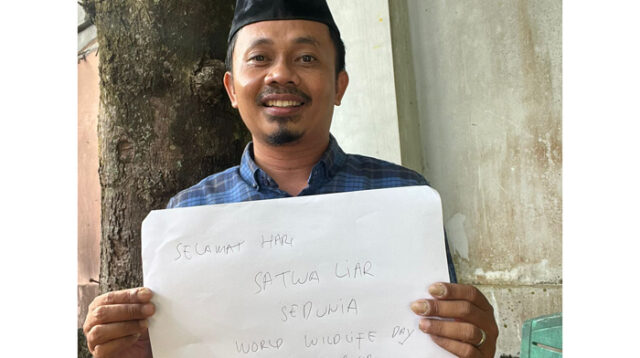 SELAMAT HARI
SATWA LIAR
SEDUNIA
WORLD WILDLIFE DAY